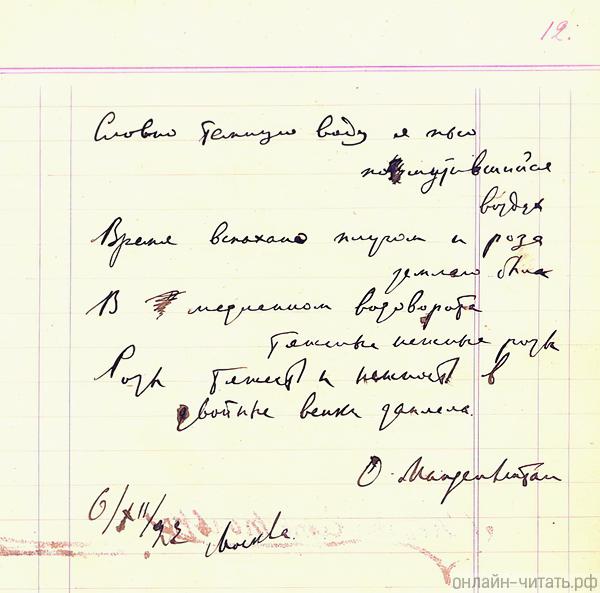 12.
Словно темную воду я пью
помутившийся
воздух
Время вспахано плугом и роза
землею была
В медленном водовороте
тяжелые нежные розы
Розы тяжесть и нежность в
двойные венки заплела.
О. Мандельштам
6/XII/23 Москва.
онлайн-читать.рф